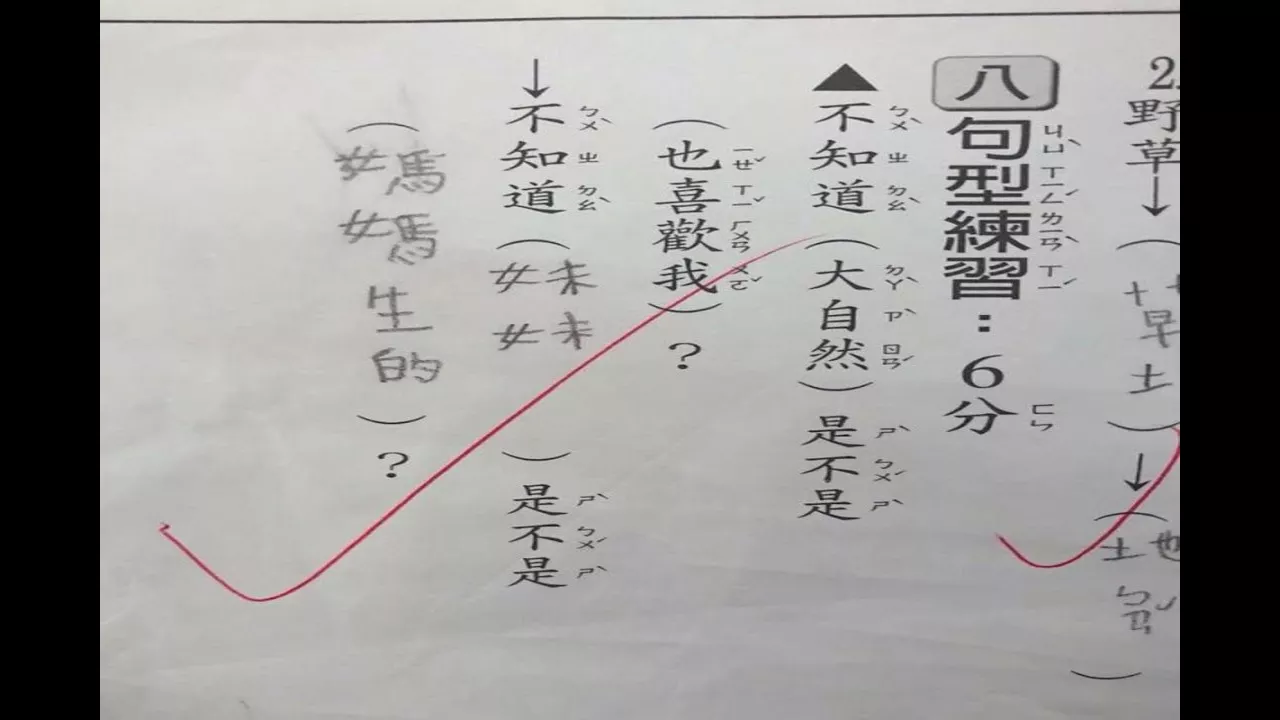 2.野草↓(草地)↓(地ㄅㄢˇ)
八 句型練習：6分
▲不知道(大自然)是不是
(也喜歡我)？
↓不知道(妹妹)是不是
(媽媽生的)？